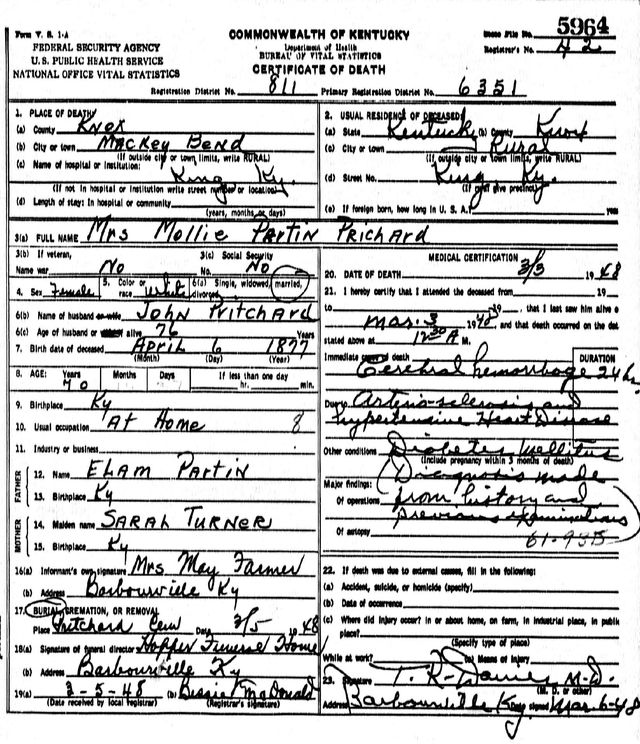 Form V. S. 1-A
FEDERAL SECURITY AGENCY
U. S. PUBLIC HEALTH SERVICE
NATIONAL OFFICE VITAL STATISTICS
COMMONWEALTH OF KENTUCKY
Department of Health
BUREAU OF VITAL STATISTICS
CERTIFICATE OF DEATH
State File No. 5964
Registrar's No. 42
Registration District No. 811 Primary Registration District No. 6351
1. PLACE OF DEATH
(a) County Knox
(b) City or town Mackey Bend
(If outside city or town limits, write RURAL)
(c) Name of hospital or institution:
King Ky.
(If not in hospital or institution write street number or location)
(d) Length of stay: In hospital or community
(years, months or days)
2. USUAL RESIDENCE OF DECEASED:
(a) State Kentucky (b) County Knox
(c) City or town Rural
(If outside city or town limits, write RURAL)
(d) Street No. King, Ky.
(If rural give precinct)
(e) If foreign born, how long in U. S. A? years
3(a) FULL NAME Mrs Mollie Partin Prichard
3(b) If veteran, Name war No
3(c) Social Security No. No
4. Sex Female 5. Color or race White 6(a) Single, widowed, married, divorced
6(b) Name of husband or wife John Pritchard
6(c) Age of husband or wife if alive 76 Years
7. Birth date of deceased April 6 1877
(Month) (Day) (Year)
8. AGE: Years 70 Months Days If less than one day hr. min.
9. Birthplace Ky
10. Usual occupation At Home 8
11. Industry or business
FATHER
12. Name Elam Partin
13. Birthplace Ky
MOTHER
14. Maiden name Sarah Turner
15. Birthplace Ky
16(a) Informant's own signature Mrs May Farmer
(b) Address Barbourville Ky
17. BURIAL, CREMATION, OR REMOVAL
Place Pritchard Cem Date 3/5 1948
18(a) Signature of funeral director Hopper Funeral Home
(b) Address Barbourville Ky
19(a) 3-5-48 (b) Bessie McDonald
(Date received by local registrar) (Registrar's signature)
MEDICAL CERTIFICATION
20. DATE OF DEATH 3/3 1948
21. I hereby certify that I attended the deceased from 19
to 19, that I last saw him alive
Mar. 3 1948, and that death occurred on the date
stated above at 12:30 A M.
Immediate cause of death DURATION
Cerebral hemorrhage 24 hrs
Due to Arterio-sclerosis and
hypertensive Heart Disease
Other conditions Diabetes Mellitus
(Include pregnancy within 3 months of death)
Major findings: Diagnosis made
Of operations from history and
previous examinations
Of autopsy
22. If death was due to external causes, fill in the following:
(a) Accident, suicide, or homicide (specify)
(b) Date of occurrence
(c) Where did injury occur? In or about home, on farm, in industrial place, in public
place?
(Specify type of place)
While at work? (e) Means of injury
23. Signature M.D.
(M. D. or other)
Address Barbourville Ky Date signed Mar 6-48